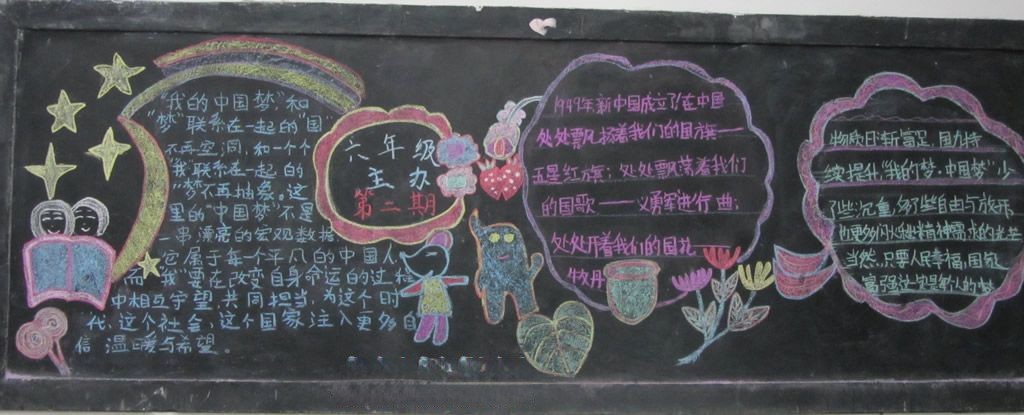 “我的中国梦”和
“梦”联系在一起的“国”
不再空洞,和一个个
“我”联系在一起的
“梦”不再抽象。这
里的“中国梦”不是
一串漂亮的宏观数据,
它属于每一个平凡的中国人,
而“我”要在改变自身命运的过程
中相互守望,共同担当,为这个时
代,这个社会,这个国家注入更多自
信 温暖与希望。
六年级
主办
第二期
1949年新中国成立了!在中国
处处飘扬着我们的国旗——
五星红旗;处处飘荡着我们
的国歌——义勇军进行曲;
处处开着我们的国花
牡丹
物质日渐富足,国力持
续提升“我的梦·中国梦”少
了些沉重,多了些自由与放飞
也更多闪烁精神需求的光芒
当然,只要人民幸福,国家
富强这就是我们的梦